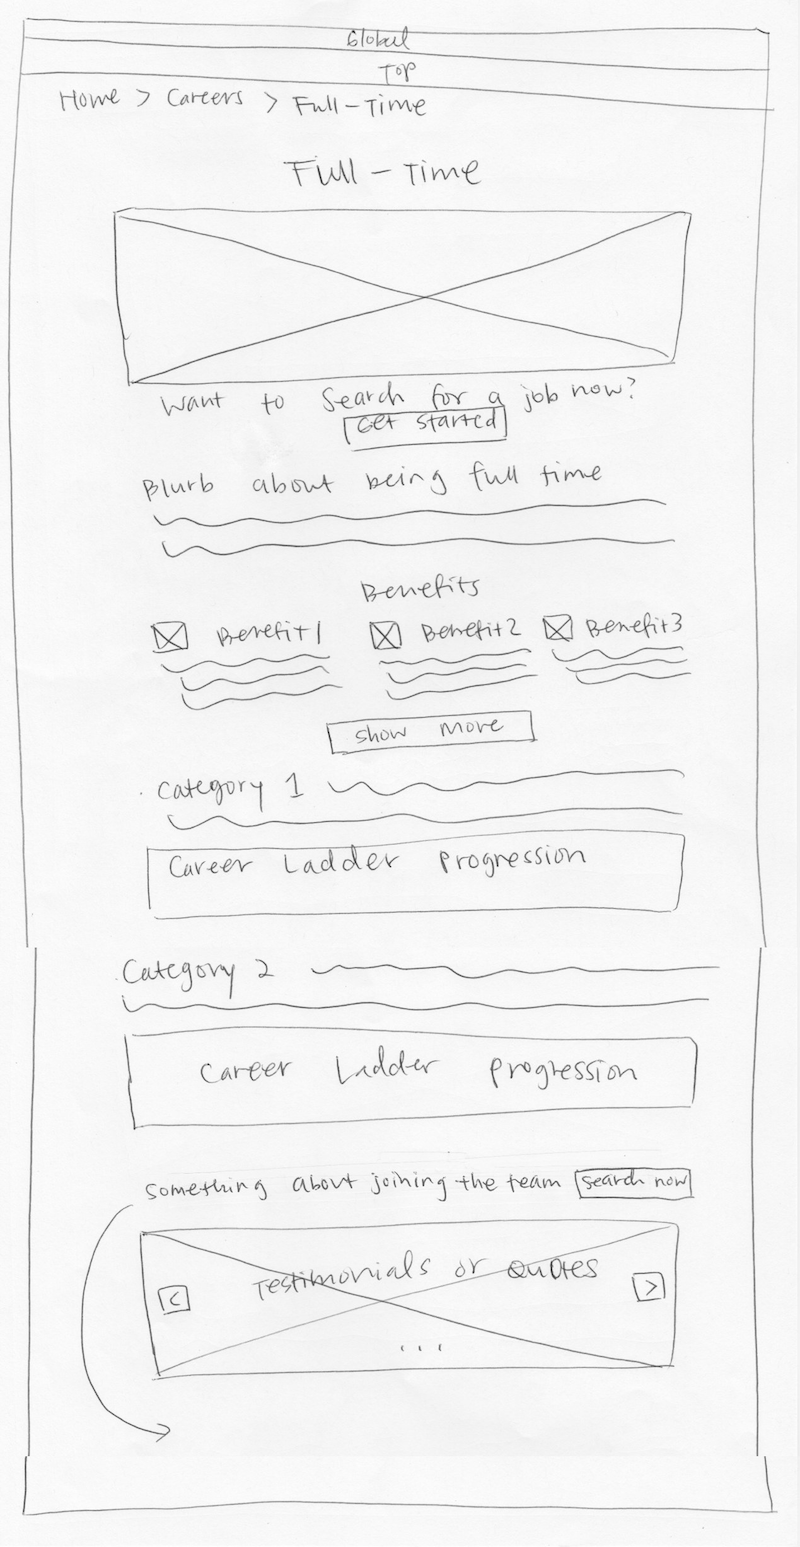 Global
Top
Home > Careers > Full-Time
Full-Time
Want to Search for a job now?
Get started
Blurb about being full time
Benefits
Benefit 1 Benefit 2 Benefit 3
show more
Category 1
Career Ladder Progression
Category 2
Career Ladder Progression
something about joining the team search now
< Testimonials or Quotes >
...